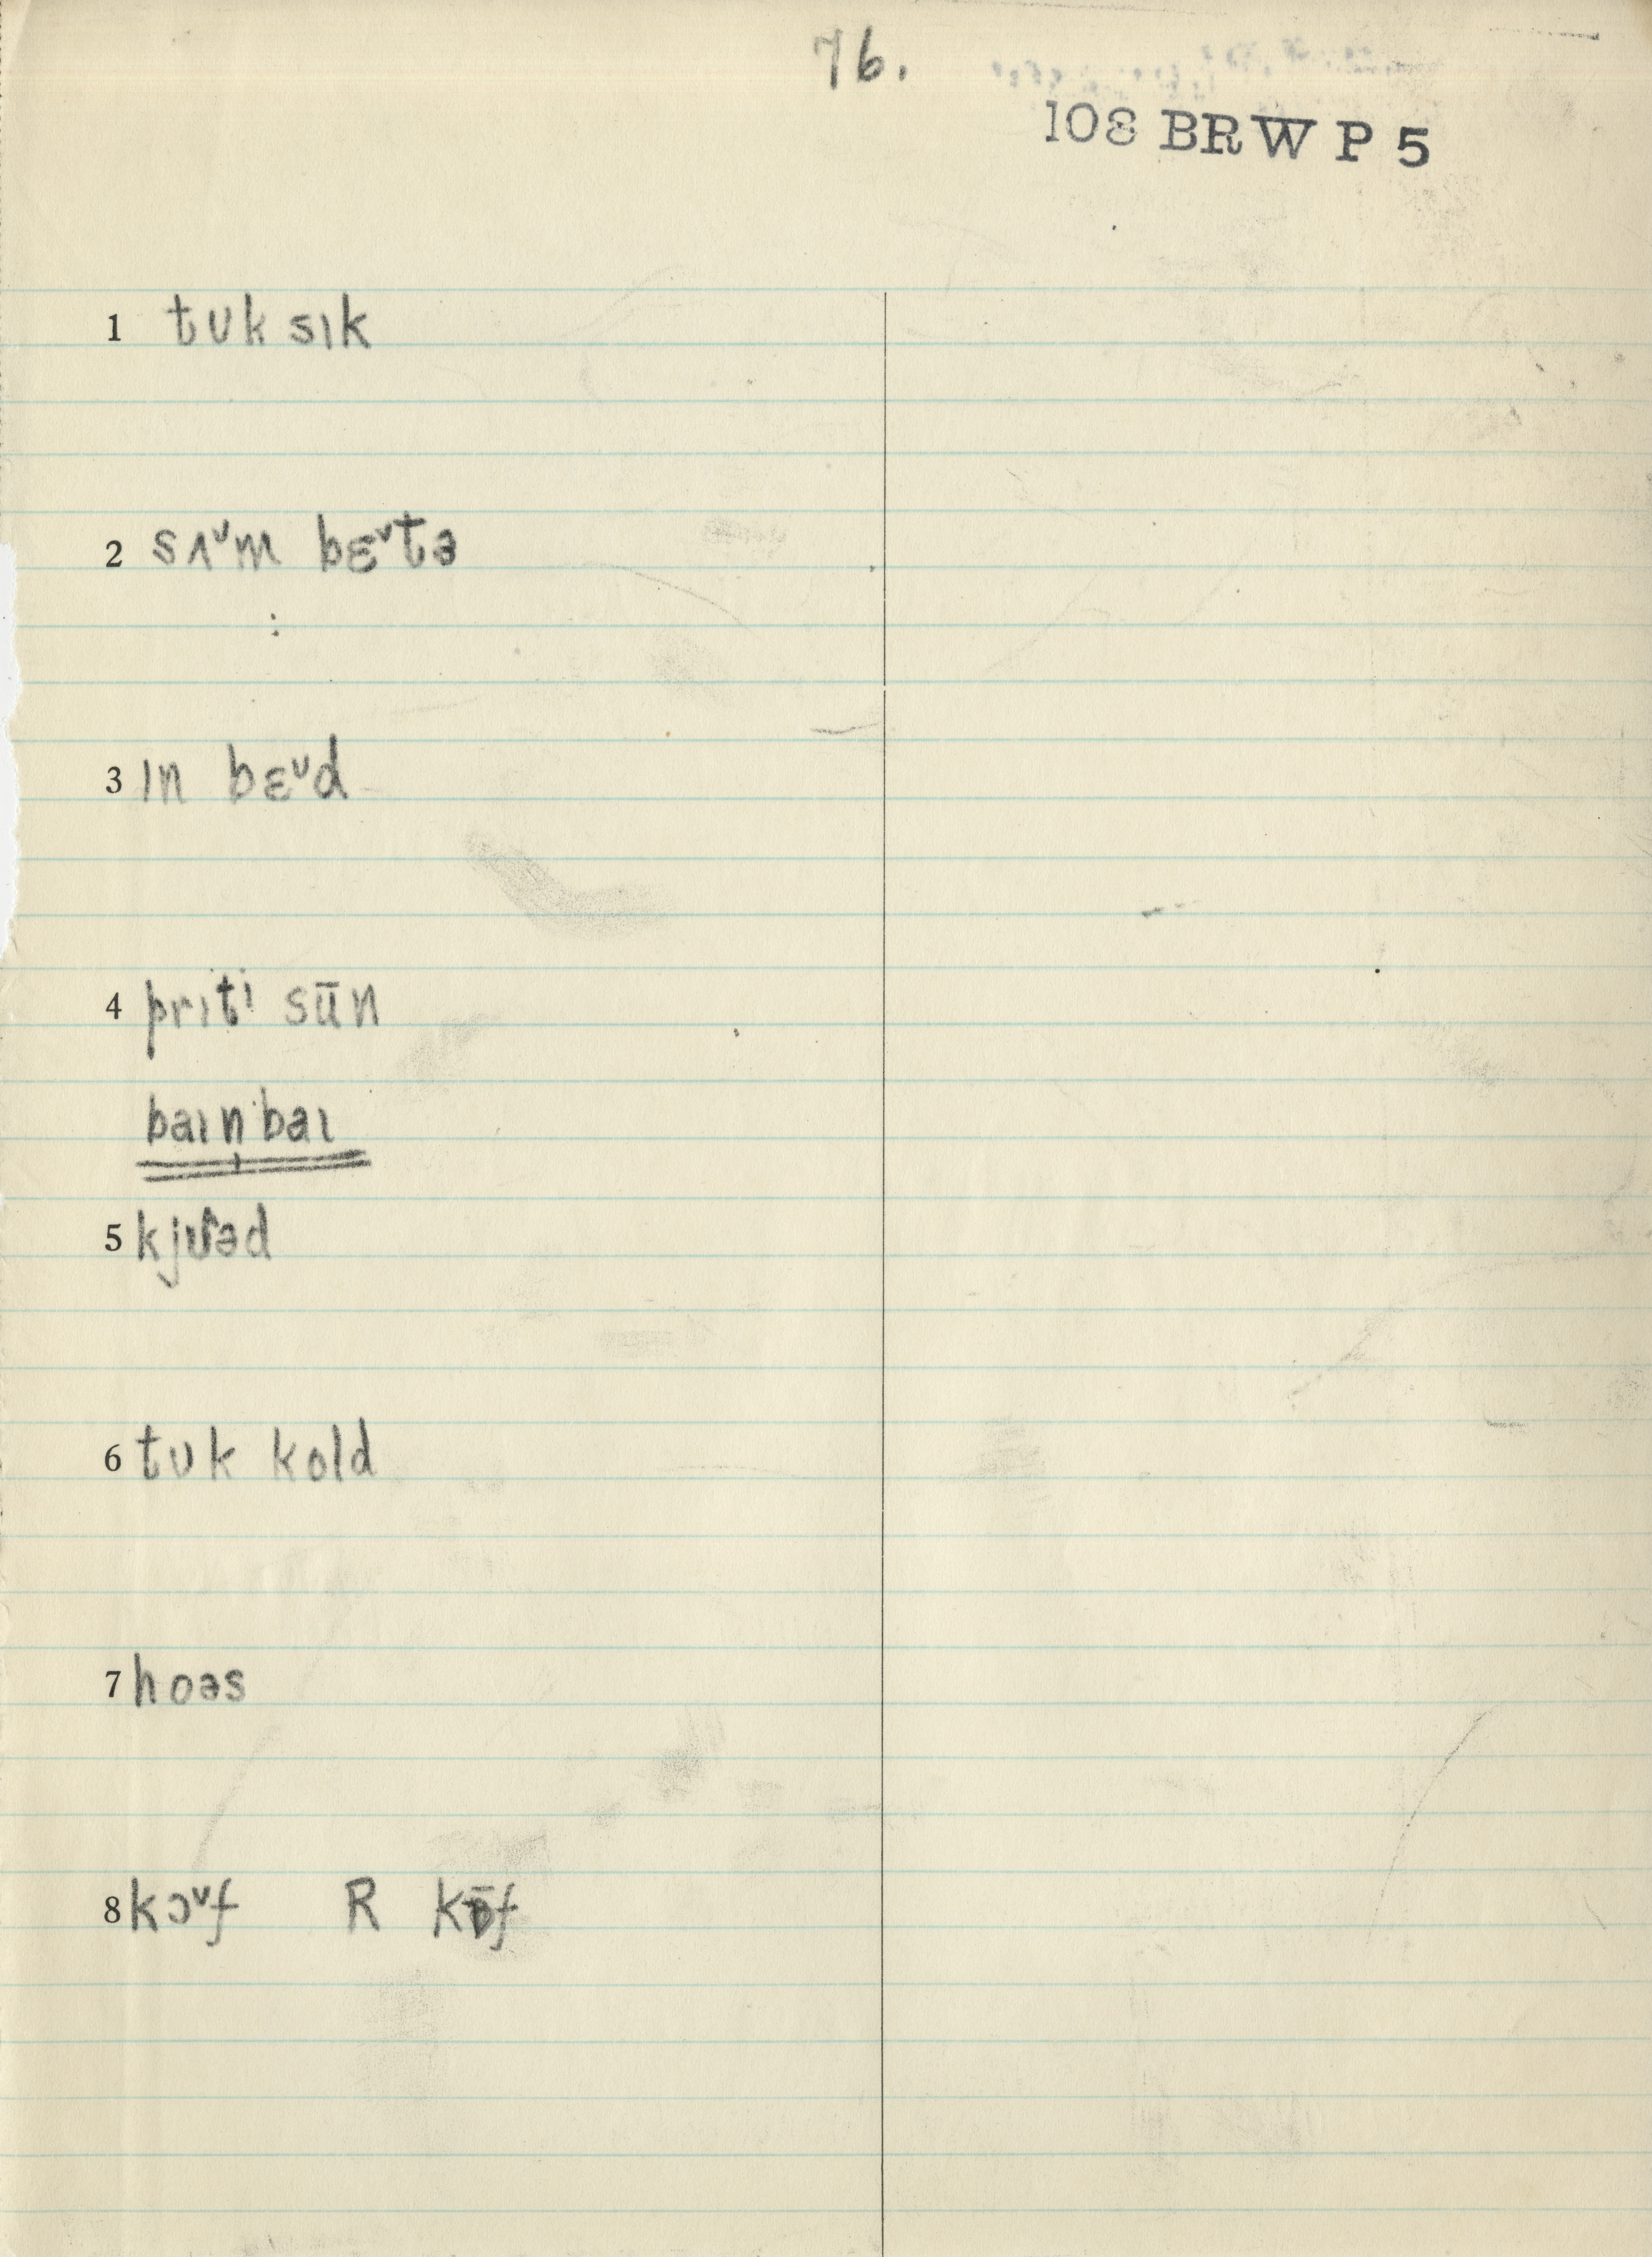 76.
108 BRW P 5
1 tʊk sɪk
2 sʌ˅m bɛ˅tə
3 ɪn bɛ˅d
4 prɪtɪ sūn
baɪn̩baɪ
5
6 tʊk kold
7 hoəs
8 kɔ˅f R kɒ̄f